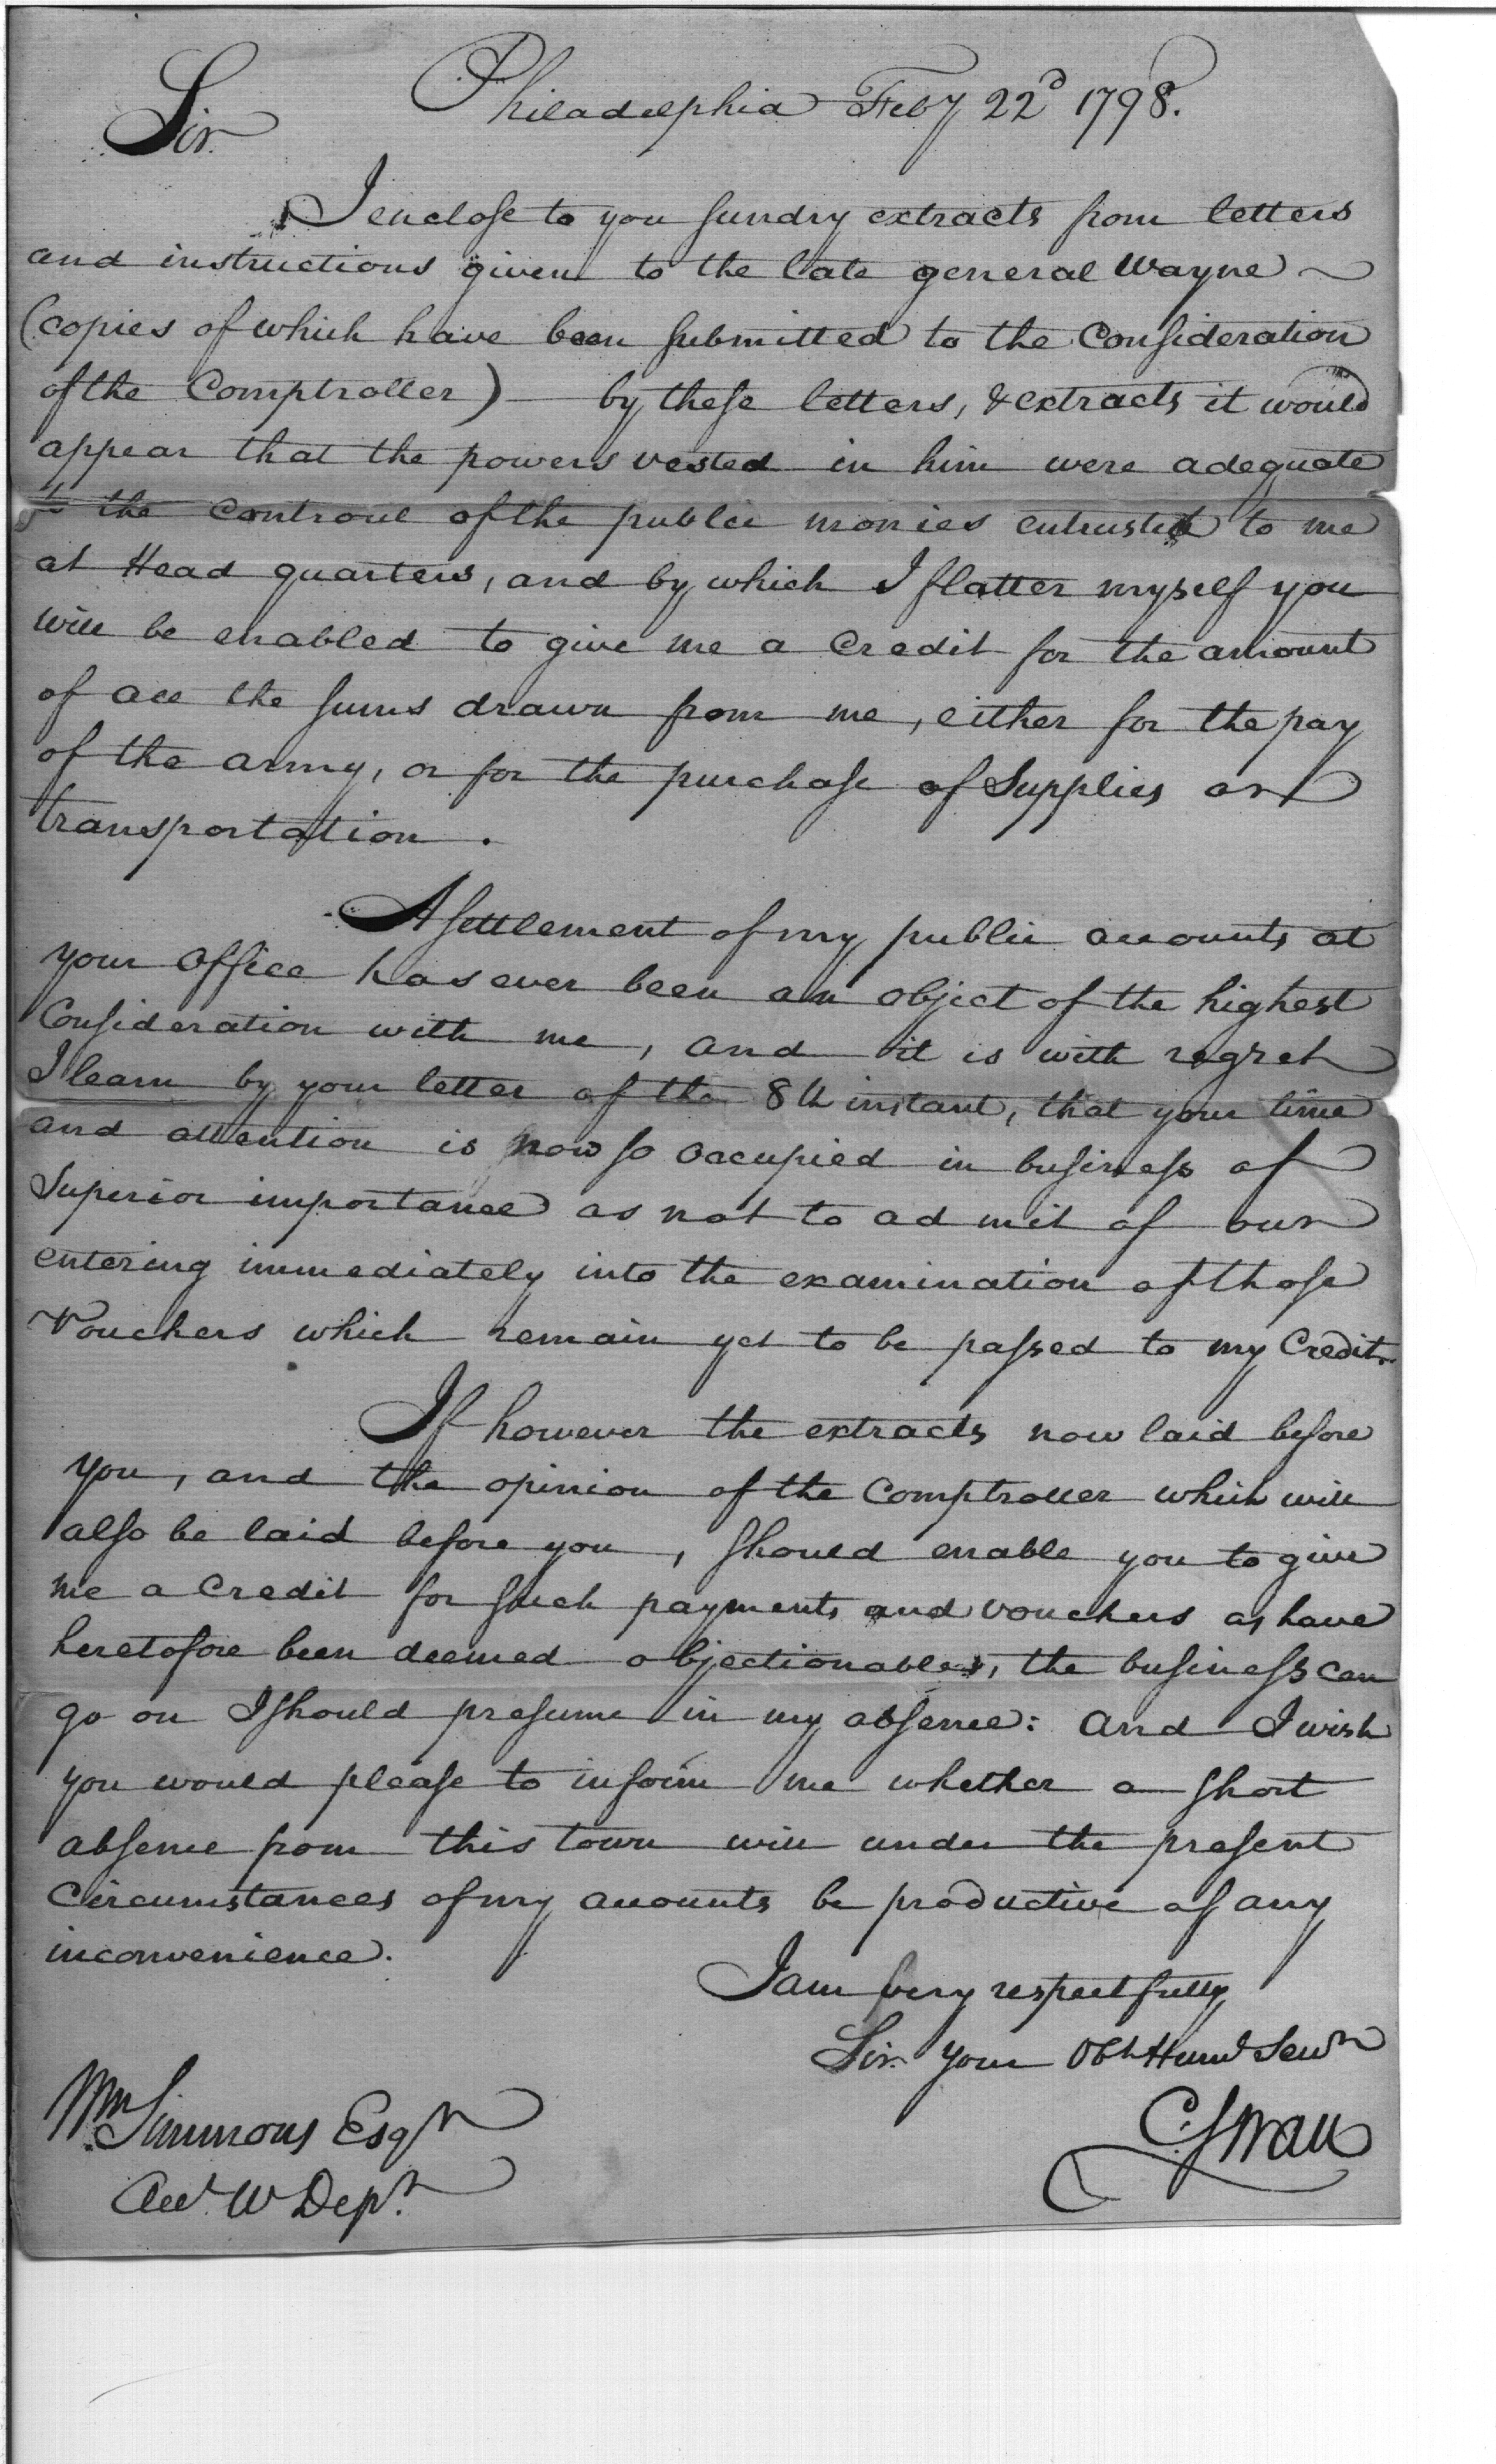 Philadelphia Feby 22d 1798.
Sir
I enclose to you sundry extracts from letters
and instructions given to the late general Wayne
(copies of which have been submitted to the Consideration
of the Comptroller) by these letters, & extracts it would
appear that the powers vested in him were adequate
to the Controul of the public monies entrusted to me
at Head quarters, and by which I flatter myself you
will be enabled to give me a Credit for the amount
of all the sums drawn from me, either for the pay
of the army, or for the purchase of Supplies or
transportation.
A settlement of my public accounts at
your Office has ever been an object of the highest
Consideration with me, and it is with regret
I learn by your letter of the 8th instant, that your time
and attention is now so occupied in business of
Superior importance as not to admit of our
entering immediately into the examination of those
Vouchers which remain yet to be passed to my Credit.
If however the extracts now laid before
you, and the opinion of the Comptroller which will
also be laid before you, should enable you to give
me a Credit for such payments and vouchers as have
heretofore been deemed objectionable, the business can
go on I should presume in my absence: and I wish
you would please to inform me whether a short
absence from this town will under the present
Circumstances of my accounts be productive of any
inconvenience.
I am very respectfully
Sir your Obt Huml Servt
C Swan
Wm Simmons Esqr
Acct. W Dept.